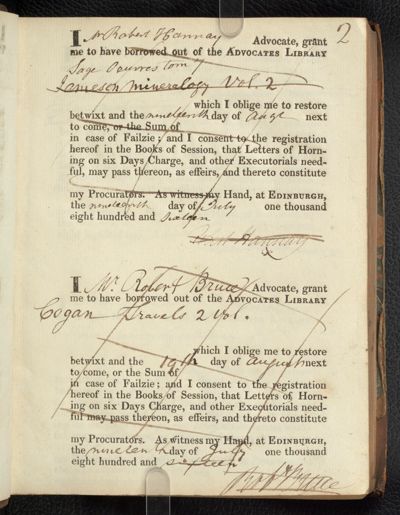 2
I Mr Robert Hannay Advocate, grant
me to have borrowed out of the ADVOCATES LIBRARY
Sage Oeuvres tom
Jameson mineralogy Vol. 2
which I oblige me to restore
betwixt and the nineteenth day of Augt next
to come, or the Sum of
in case of Failzie; and I consent to the registration
hereof in the Books of Session, that Letters of Horn-
ing on six Days Charge, and other Executorials need-
ful, may pass thereon, as effeirs, and thereto constitute
my Procurators. As witness my Hand, at EDINBURGH,
the nineteenth day of July one thousand
eight hundred and sixteen
Robt Hannay
I Mr. Robert Bruce Advocate, grant
me to have borrowed out of the ADVOCATES LIBRARY
Cogan Travels 2 Vol.
which I oblige me to restore
betwixt and the 19th day of August next
to come, or the Sum of
in case of Failzie; and I consent to the registration
hereof in the Books of Session, that Letters of Horn-
ing on six Days Charge, and other Executorials need-
ful may pass thereon, as effeirs, and thereto constitute
my Procurators. As witness my Hand, at EDINBURGH,
the nineteenth day of July one thousand
eight hundred and sixteen
Robt Bruce